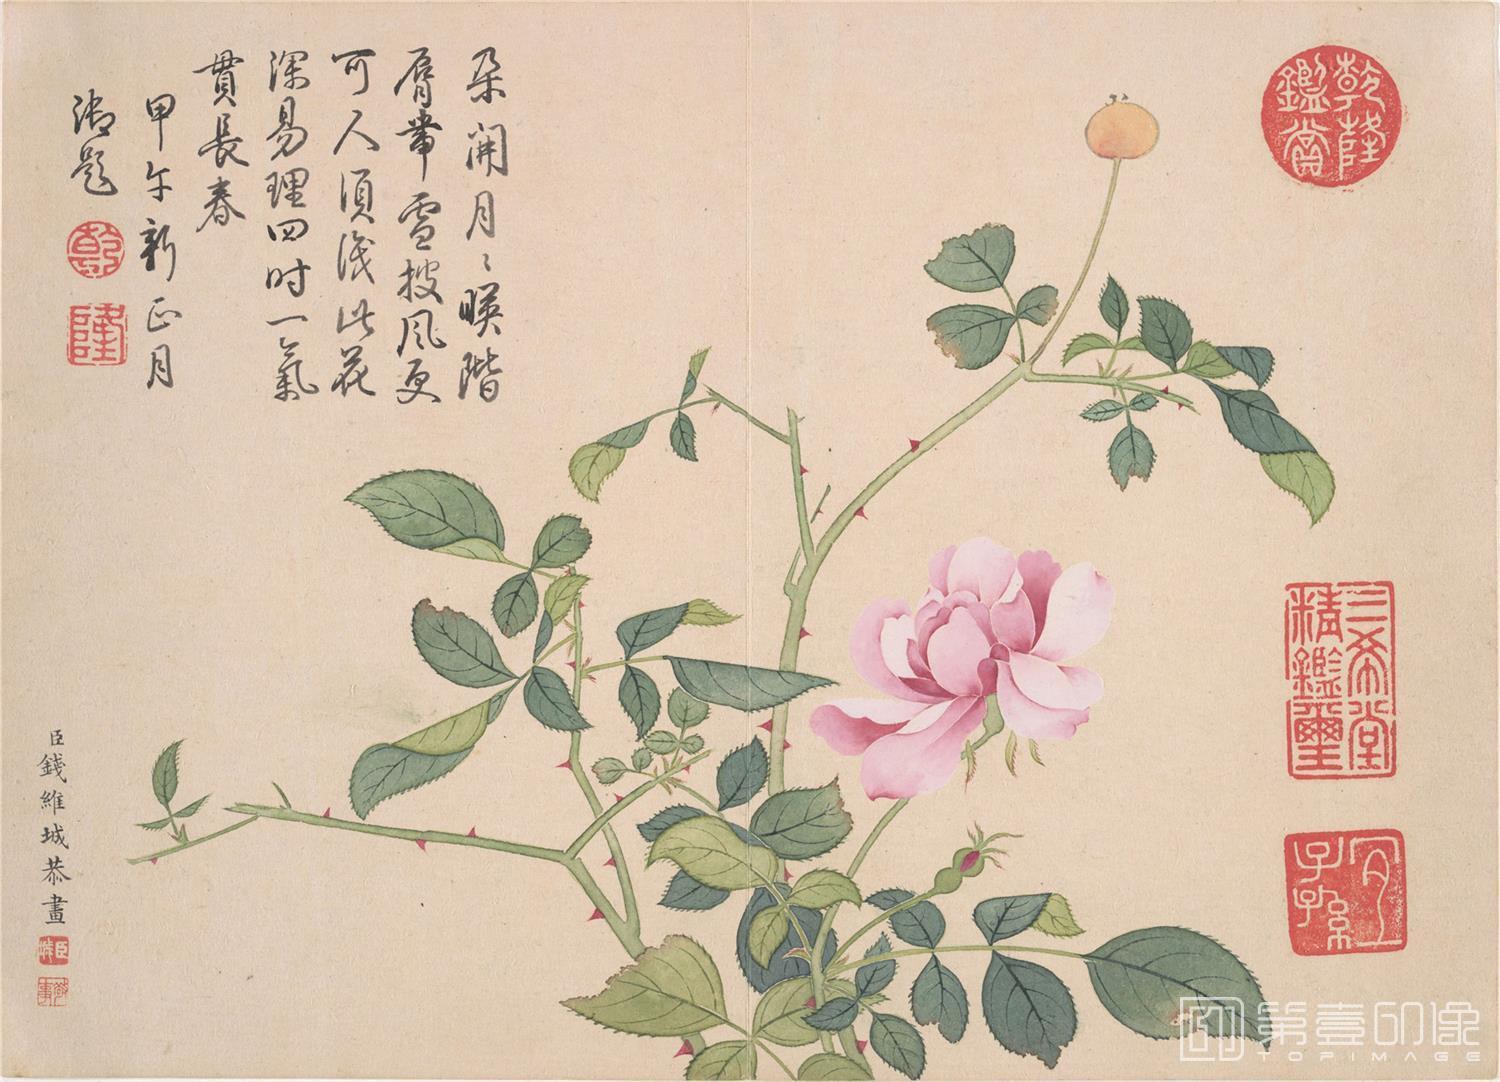 乾隆鑑賞
三希堂精鑑璽
宜子孫
朵開月〻暎階
脣帶雪披風更
可人須識此花
深易理四时一氣
貫長春
甲午新正月
御題
乾
隆
臣錢維城恭畫
臣城
第壹印像
TOPIMAGE